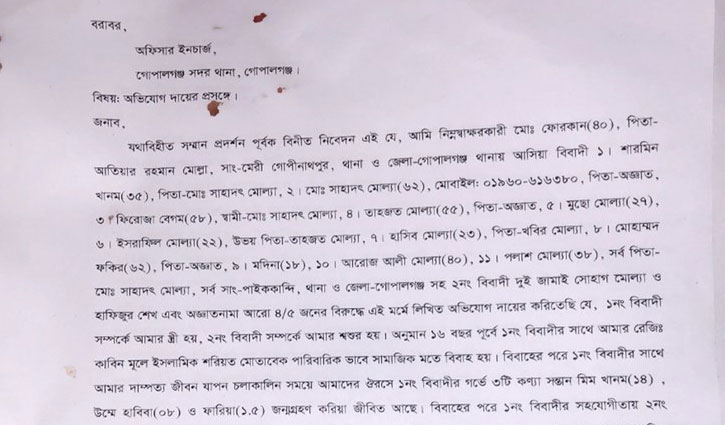 বরাবর,
অফিসার ইনচার্জ,
গোপালগঞ্জ সদর থানা, গোপালগঞ্জ।
বিষয়: অভিযোগ দায়ের প্রসঙ্গে।
জনাব,
যথাবিহীত সম্মান প্রদর্শন পূর্বক বিনীত নিবেদন এই যে, আমি নিম্নস্বাক্ষরকারী মোঃ ফোরকান(৪০), পিতা-
আতিয়ার রহমান মোল্লা, সাং-মেরী গোপীনাথপুর, থানা ও জেলা-গোপালগঞ্জ থানায় আসিয়া বিবাদী ১। শারমিন
খানম(৩৫), পিতা-মোঃ সাহাদৎ মোল্যা, ২। মোঃ সাহাদৎ মোল্যা(৬২), মোবাইল: ০১৯৬০-৬১৬৩৮০, পিতা-অজ্ঞাত,
৩। ফিরোজা বেগম(৫৮), স্বামী-মোঃ সাহাদৎ মোল্যা, ৪। তাহজত মোল্যা(৫৫), পিতা-অজ্ঞাত, ৫। মুছো মোল্যা(২৭),
৬। ইসরাফিল মোল্যা(২২), উভয় পিতা-তাহজত মোল্যা, ৭। হাসিব মোল্যা(২৩), পিতা-খবির মোল্যা, ৮। মোহাম্মদ
ফকির(৬২), পিতা-অজ্ঞাত, ৯। মদিনা(১৮), ১০। আরোজ আলী মোল্যা(৪০), ১১। পলাশ মোল্যা(৩৮), সর্ব পিতা-
মোঃ সাহাদৎ মোল্যা, সর্ব সাং-পাইককান্দি, থানা ও জেলা-গোপালগঞ্জ সহ ২নং বিবাদী দুই জামাই সোহাগ মোল্যা ও
হাফিজুর শেখ এবং অজ্ঞাতনামা আরো ৪/৫ জনের বিরুদ্ধে এই মর্মে লিখিত অভিযোগ দায়ের করিতেছি যে, ১নং বিবাদী
সম্পর্কে আমার স্ত্রী হয়, ২নং বিবাদী সম্পর্কে আমার শ্বশুর হয়। অনুমান ১৬ বছর পূর্বে ১নং বিবাদীর সাথে আমার রেজিঃ
কাবিন মূলে ইসলামিক শরিয়ত মোতাবেক পারিবারিক ভাবে সামাজিক মতে বিবাহ হয়। বিবাহের পরে ১নং বিবাদীর সাথে
আমার দাম্পত্য জীবন যাপন চলাকালিন সময়ে আমাদের ঔরসে ১নং বিবাদীর গর্ভে ৩টি কণ্যা সন্তান মিম খানম(১৪),
উম্মে হাবিবা(০৮) ও ফারিয়া(১.৫) জন্মগ্রহণ করিয়া জীবিত আছে। বিবাহের পরে ১নং বিবাদীর সহযোগীতায় ২নং